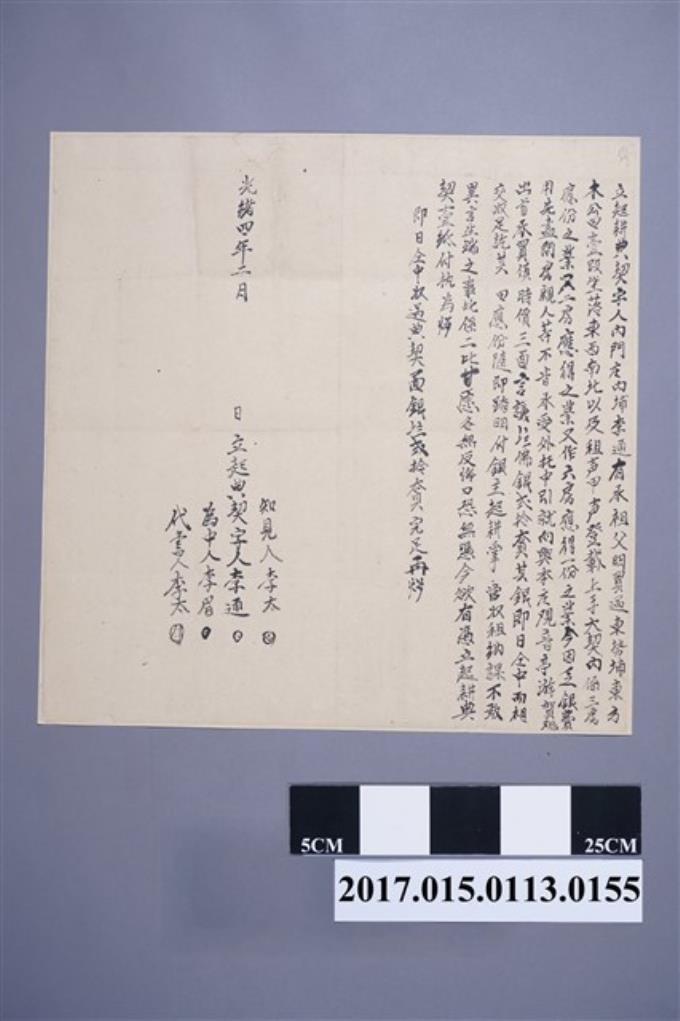 立起耕典契字人內門庄內埔李通有承祖父明買過東勢埔東方
木公田壹段坐落東西南北以及租声甲声登載上手大契內係三房
應份之業又二房應得之業又作六房應得一份之業今因乏銀費
用先盡問房親人等不肯承受外托中引就向與本庄觀音亭游
出首承買値時價三面言議佛銀弍拾大員其銀即日仝中兩相
交收足訖其田應份隨即踏明付銀主起耕掌管收租納課不敢
異言生端之事此係二比甘愿各無反悔口恐無憑今欲有憑立起耕典
契壹紙付執為炤
即日仝中收過典契面銀弍拾大員完足再炤
光緒四年二月 日立起典契字人李通
知見人李太
為中人李眉
代書人李太
5CM 25CM
2017.015.0113.0155